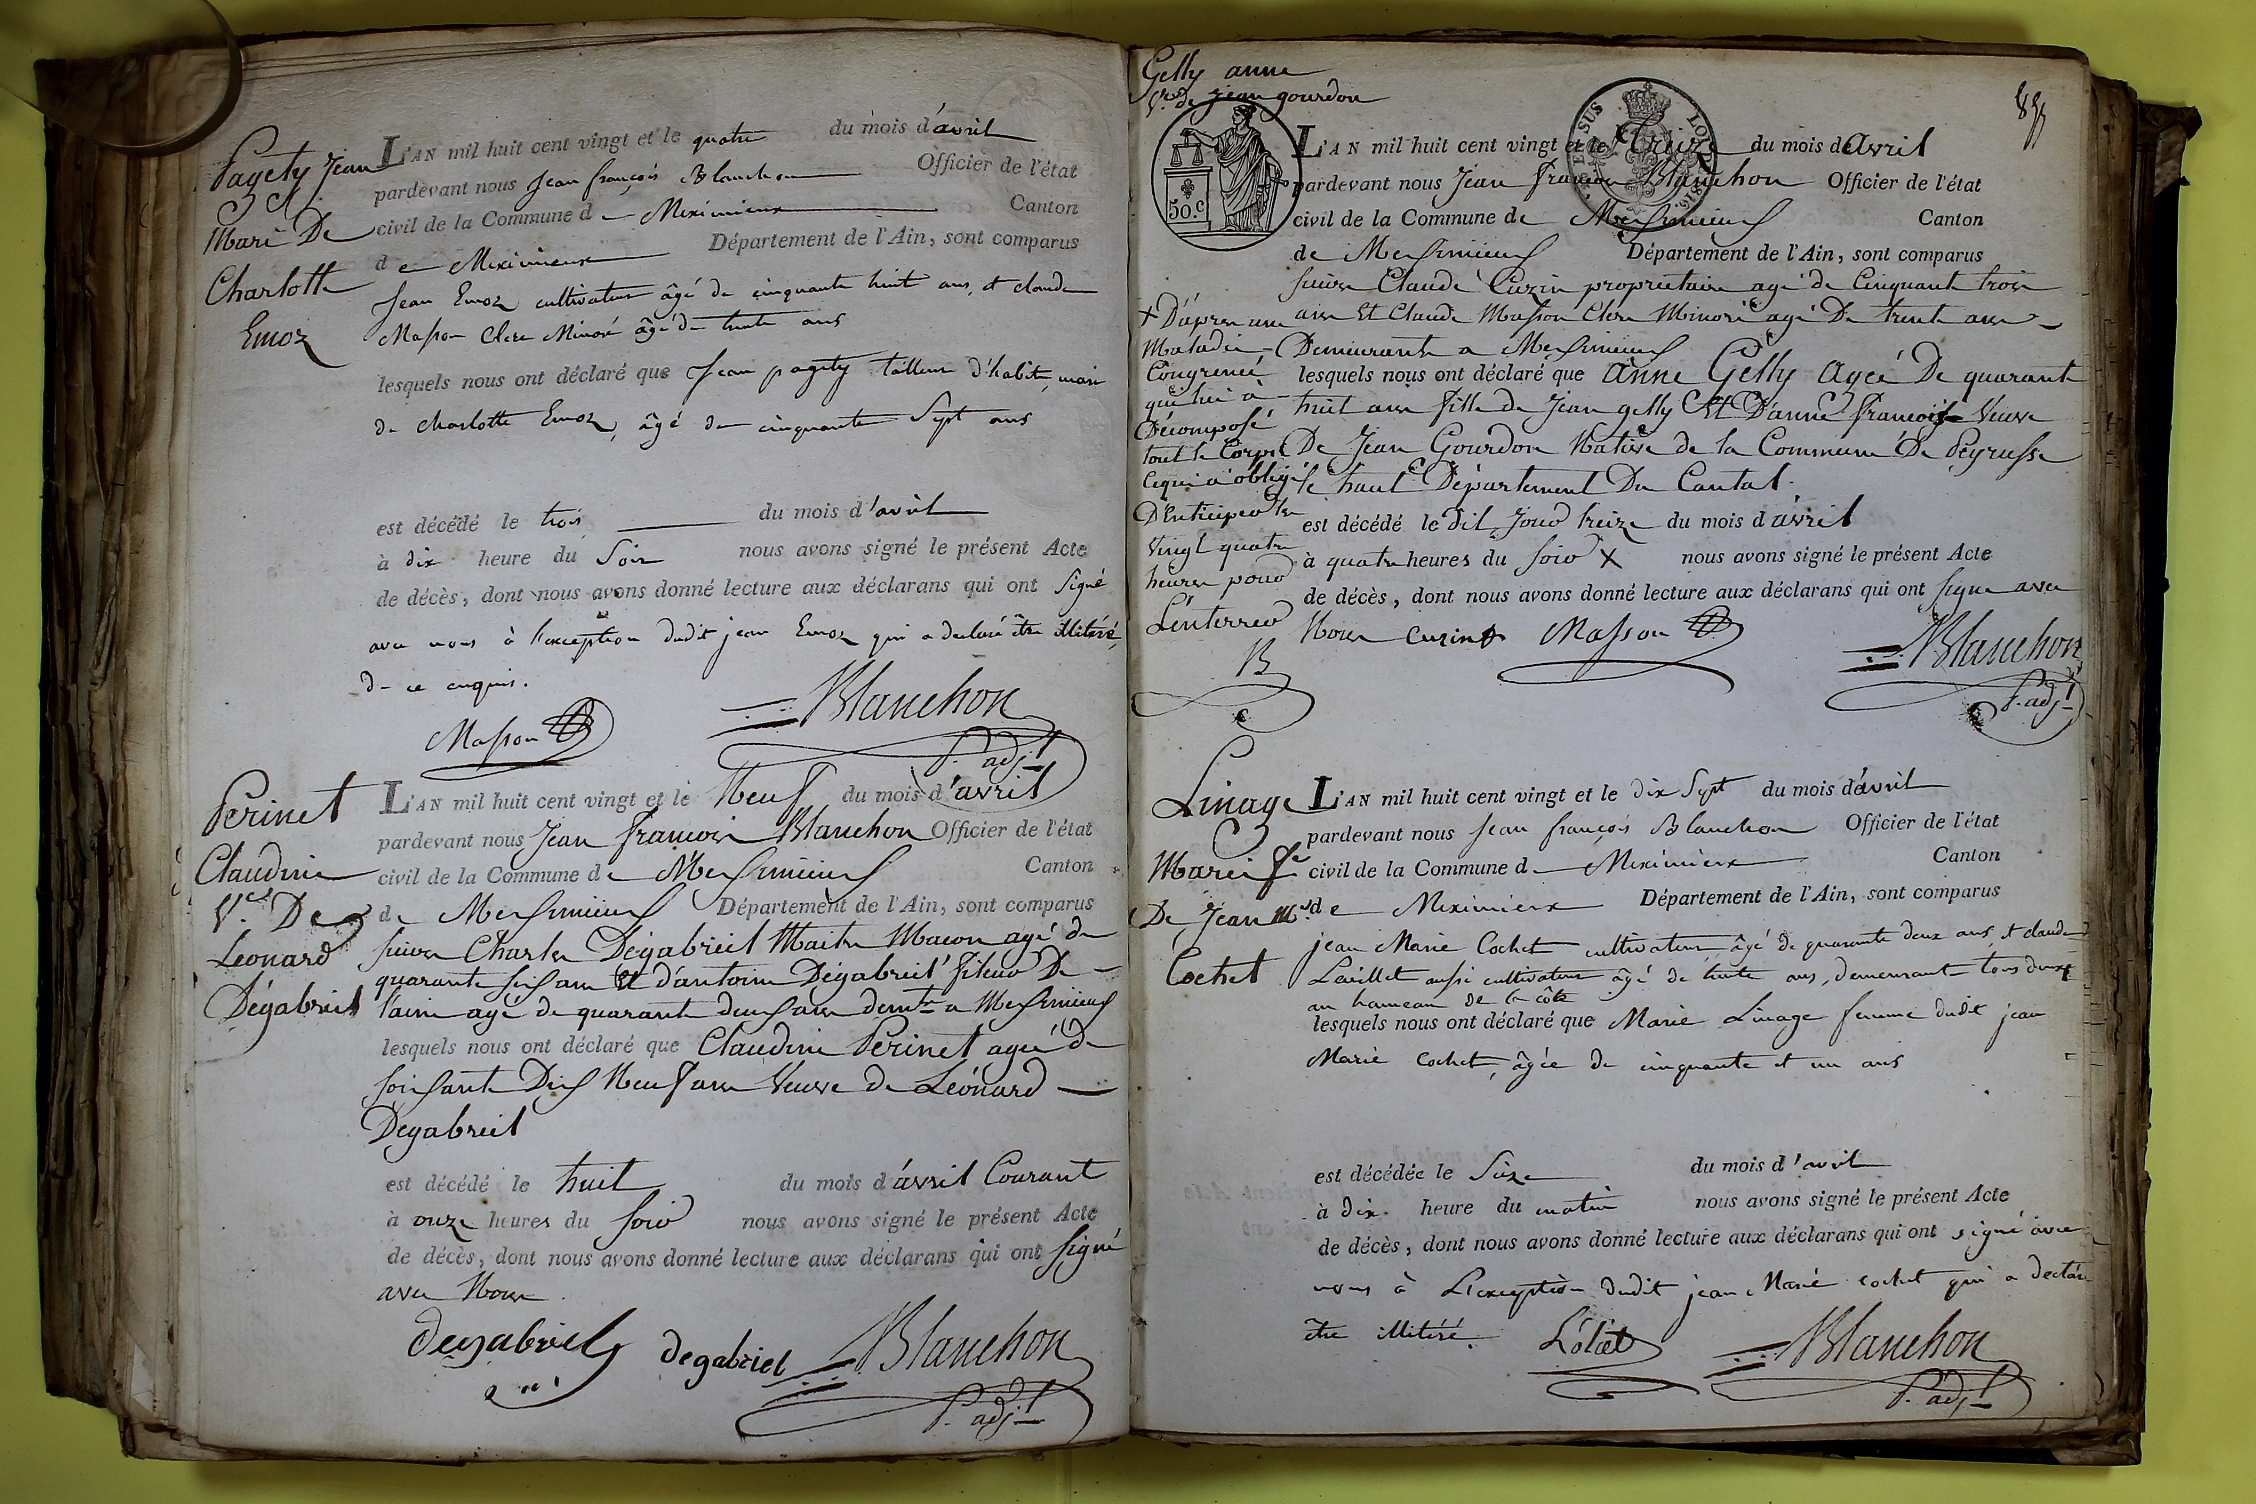 Pagety Jean
Mari De
Charlotte
Emoz
L'AN mil huit cent vingt et le quatre du mois d'avril
pardevant nous Jean françois Blanchon Officier de l'état
civil de la Commune de Meximieux Canton
de Meximieux Département de l'Ain, sont comparus
Jean Emoz cultivateur âgé de cinquante huit ans, et claude
Masson Clerc Minoré âgé de trente ans
lesquels nous ont déclaré que Jean pagety tailleur d'habit, mari
de charlotte Emoz, âgé de cinquante Sept ans
est décédé le trois du mois d'avril
à dix heure du Soir nous avons signé le présent Acte
de décès, dont nous avons donné lecture aux déclarans qui ont Signé
avec nous à l'exception dudit jean Emoz qui a declaré être illitéré,
de ce enquis.
Masson Blanchon
P. adjt
Perinet
Claudine
Ve De
Léonard
Dégabriel
L'AN mil huit cent vingt et le Neuf du mois d'avril
pardevant nous Jean francois Blanchon Officier de l'état
civil de la Commune de Mersimieus Canton
de Mersimieus Département de l'Ain, sont comparus
Charles Dégabriel Maitre Macon agé de
quarante sis ans Et d'antoine Dégabriel De
agé de quarante deus ans demt a Mersimieus
lesquels nous ont déclaré que Claudine Perinet ageé de
soissante Dis Neuf ans Veuve de Léonard
Degabriel
est décédé le huit du mois d'avril Courant
à onze heures du soir nous avons signé le présent Acte
de décès, dont nous avons donné lecture aux déclarans qui ont signé
avec Nous
degabriel degabriel Blanchon
P. adjt
Gelly anne
Ve de jean gourdon
50.c
L'AN mil huit cent vingt et le treize du mois de Avril
pardevant nous Jean francois Blanchon Officier de l'état
civil de la Commune de Mersimieus Canton
de Mersimieus Département de l'Ain, sont comparus
Claude Cuzin proprietaire agé de Cinquant trois
ans Et Claude Masson Clerc Minoré agé De trente ans
Demeurants a Mersimieus
lesquels nous ont déclaré que anne Gelly Ageé De quarante
huit ans fille de Jean gelly Et D'anne francoise Veuve
De Jean Gourdon Native de la Commune De Peyrusse
le haut Département Du Cantal.
est décédé le dit Jour treize du mois d'avril
à quatre heures du soir X nous avons signé le présent Acte
de décès, dont nous avons donné lecture aux déclarans qui ont signe avec
Nous Cuzin Masson Blanchon
P. adjt
+ D'apres une
Maladie
Congrenée
qui lui à
Décomposé
tout le Corps
Ce qui a obligé
D'Enticiper les
Vingt quatre
heures pour
L'enterrer
B
Linage
Marie fe
De Jean Mie
Cochet
L'AN mil huit cent vingt et le dix Sept du mois d'avril
pardevant nous Jean françois Blanchon Officier de l'état
civil de la Commune de Meximieux Canton
de Meximieux Département de l'Ain, sont comparus
jean Marie Cochet cultivateur âgé de quarante deux ans, et claude
aussi cultivateur âgé de trente ans, demeurant tous deux
au hameau de la côte
lesquels nous ont déclaré que Marie Linage femme dudit jean
Marie Cochet, âgée de cinquante et un ans
est décédée le Seize du mois d'avril
à dix heure du matin nous avons signé le présent Acte
de décès, dont nous avons donné lecture aux déclarans qui ont signé avec
nous à L'exception dudit jean Marie cochet qui a declaré
être illitéré.
Blanchon
P. adjt